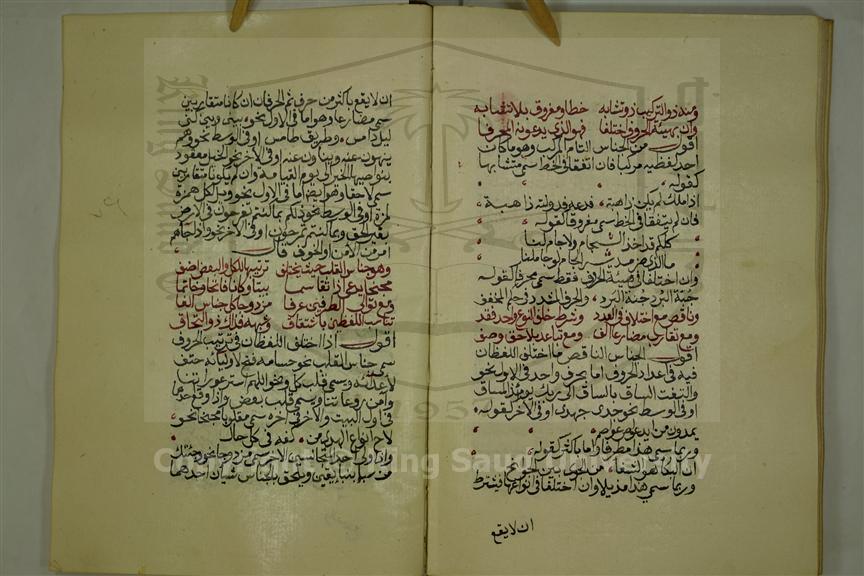 ومنه ذو التركيب ذو تشابه خطا ومفروق بلا تشابه
وان بهيئة الحروف اختلفا فهو الذي يدعونه المحرفا
اقول من الجناس التام المركب وهو ما كان
احد لفظيه مركبا فان اتفقا في الخط سمي متشابها
كقوله
اذا ملك لم يكن ذا هبة فدعه فدولته ذاهبة
فان لم يتفقا في الخط سمي مفروقا كقوله
كلكم قد اخذ الجام ولا جام لنا
ما الذي ضر مدير الجام لو جاملنا
وان اختلفا في هيئة الحروف فقط سمي محرفا كقوله
جبة البرد جنة البرد والحرف المشدد في حكم المخفف
وناقص مع اختلاف في العدد وشرط خلف النوع واحد فقد
ومع تقارب مضارعا الف ومع تباعد بلاحق وصف
اقول الجناس الناقص ما اختلف اللفظان
فيه في اعداد الحروف اما بحرف واحد في الاول نحو
والتفت الساق بالساق الى ربك يومئذ المساق
او في الوسط نحو جدي جهدي او في الاخر كقوله
يمدون من ايد عواص عواصم
وربما سمي هذا مطرفا واما باكثر كقوله
ان البكا هو الشفاء من الجوى بين الجوانح
وربما سمي هذا مذيلا وان اختلفا في انواعها فيشترط
ان لا يقع
ان لا يقع باكثر من حرف ثم الحرفان ان كانا متقاربين
سمي مضارعا وهو اما في الاول نحو بيني وبين كني
ليل دامس وطريق طامس او في الوسط نحو وهم
ينهون عنه وينأون عنه او في الاخر نحو الخيل معقود
بنواصيها الخير الى يوم القيامة وان لم يكونا متقاربين
سمي لاحقا وهو ايضا اما في الاول نحو ويل لكل همزة
لمزة او في الوسط نحو ذلكم بما كنتم تفرحون في الارض
بغير الحق وبما كنتم تمرحون او في الاخر نحو واذا جاءهم
امر من الامن او الخوف قال
وهو جناس القلب حيث يختلف ترتيبها للكل والبعض اضف
مجنحا يدعى اذا تقاسما بيتا وكانا فاتحا وخاتما
ومع توالي الطرفين عرفا مزدوجا كل جناس الفا
تناسب اللفظين باشتقاق وشبهه فذاك ذو التحاق
اقول اذا اختلف اللفظان في ترتيب الحروف
سمي جناس القلب نحو حسامه فتح لاوليائه حتف
لاعدائه ويسمى قلب كل ونحو اللهم استر عوراتنا
وآمن روعاتنا ويسمى قلب بعض واذا وقع احدهما
في اول البيت والاخر في اخره سمي مقلوبا مجنحا نحو
لاح انوار الهدى من كفه في كل حال
واذا ولي احد المتجانسين الاخر سمي مزدوجا نحو وجئتك
من سبإ بنبإ يقين ويلحق بالجناس شيآن احدهما